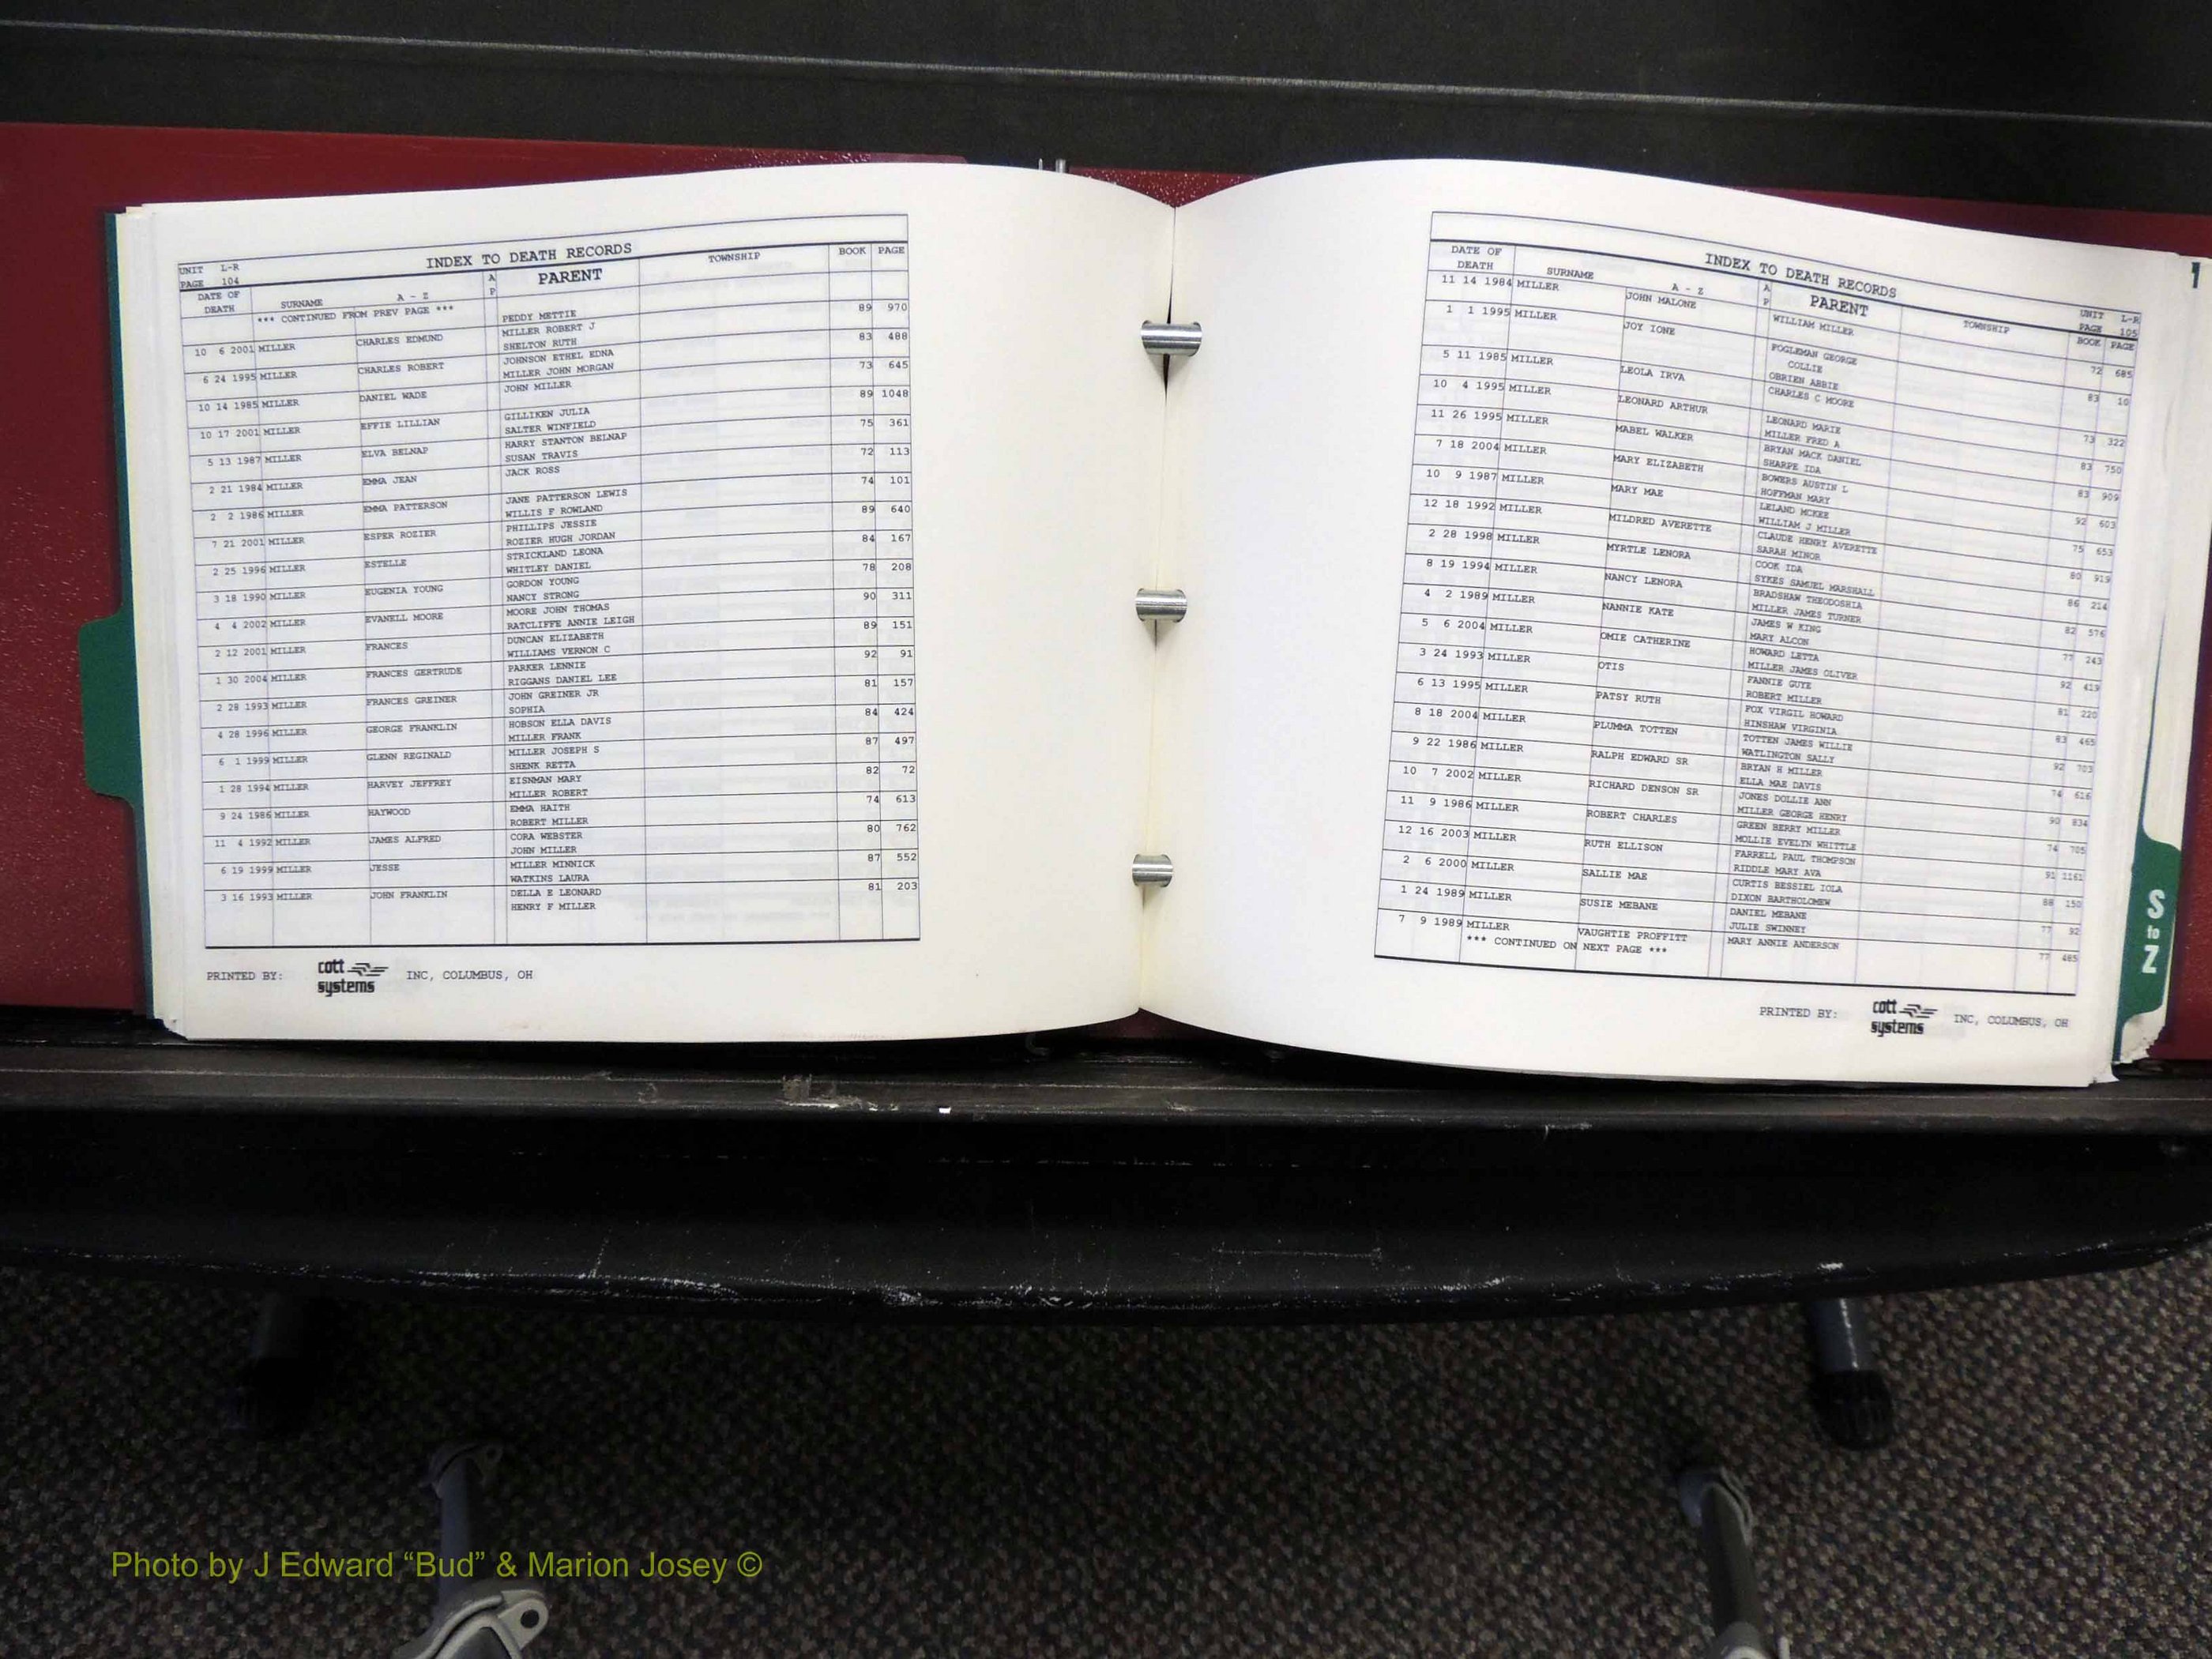 UNIT L-R INDEX TO DEATH RECORDS
PAGE 104
DATE OF DEATH SURNAME A - Z A P PARENT TOWNSHIP BOOK PAGE
*** CONTINUED FROM PREV PAGE *** PEDDY METTIE
10 6 2001 MILLER CHARLES EDMUND MILLER ROBERT J 89 970
SHELTON RUTH
6 24 1995 MILLER CHARLES ROBERT JOHNSON ETHEL EDNA 83 488
MILLER JOHN MORGAN
10 14 1985 MILLER DANIEL WADE JOHN MILLER 73 645
10 17 2001 MILLER EFFIE LILLIAN GILLIKEN JULIA 89 1048
SALTER WINFIELD
5 13 1987 MILLER ELVA BELNAP HARRY STANTON BELNAP 75 361
SUSAN TRAVIS
2 21 1984 MILLER EMMA JEAN JACK ROSS 72 113
2 2 1986 MILLER EMMA PATTERSON JANE PATTERSON LEWIS 74 101
WILLIS F ROWLAND
7 21 2001 MILLER ESPER ROZIER PHILLIPS JESSIE 89 640
ROZIER HUGH JORDAN
2 25 1996 MILLER ESTELLE STRICKLAND LEONA 84 167
WHITLEY DANIEL
3 18 1990 MILLER EUGENIA YOUNG GORDON YOUNG 78 208
NANCY STRONG
4 4 2002 MILLER EVANELL MOORE MOORE JOHN THOMAS 90 311
RATCLIFFE ANNIE LEIGH
2 12 2001 MILLER FRANCES DUNCAN ELIZABETH 89 151
WILLIAMS VERNON C
1 30 2004 MILLER FRANCES GERTRUDE PARKER LENNIE 92 91
RIGGANS DANIEL LEE
2 28 1993 MILLER FRANCES GREINER JOHN GREINER JR 81 157
SOPHIA
4 28 1996 MILLER GEORGE FRANKLIN HOBSON ELLA DAVIS 84 424
MILLER FRANK
6 1 1999 MILLER GLENN REGINALD MILLER JOSEPH S 87 497
SHENK RETTA
1 28 1994 MILLER HARVEY JEFFREY EISNMAN MARY 82 72
MILLER ROBERT
9 24 1986 MILLER HAYWOOD EMMA HAITH 74 613
ROBERT MILLER
11 4 1992 MILLER JAMES ALFRED CORA WEBSTER 80 762
JOHN MILLER
6 19 1999 MILLER JESSE MILLER MINNICK 87 552
WATKINS LAURA
3 16 1993 MILLER JOHN FRANKLIN DELLA E LEONARD 81 203
HENRY F MILLER
PRINTED BY: cott systems INC, COLUMBUS, OH
INDEX TO DEATH RECORDS UNIT L-R
PAGE 105
DATE OF DEATH SURNAME A - Z A P PARENT TOWNSHIP BOOK PAGE
11 14 1984 MILLER JOHN MALONE WILLIAM MILLER 72 685
1 1 1995 MILLER JOY IONE FOGLEMAN GEORGE 83 10
COLLIE
OBRIEN ABBIE
5 11 1985 MILLER LEOLA IRVA CHARLES C MOORE 73 322
10 4 1995 MILLER LEONARD ARTHUR LEONARD MARIE 83 750
MILLER FRED A
11 26 1995 MILLER MABEL WALKER BRYAN MACK DANIEL 83 909
SHARPE IDA
7 18 2004 MILLER MARY ELIZABETH BOWERS AUSTIN L 92 603
HOFFMAN MARY
10 9 1987 MILLER MARY MAE LELAND MCKEE 75 653
WILLIAM J MILLER
12 18 1992 MILLER MILDRED AVERETTE CLAUDE HENRY AVERETTE 80 919
SARAH MINOR
2 28 1998 MILLER MYRTLE LENORA COOK IDA 86 214
SYKES SAMUEL MARSHALL
8 19 1994 MILLER NANCY LENORA BRADSHAW THEODOSHIA 82 576
MILLER JAMES TURNER
4 2 1989 MILLER NANNIE KATE JAMES W KING 77 243
MARY ALCON
5 6 2004 MILLER OMIE CATHERINE HOWARD LETTA 92 419
MILLER JAMES OLIVER
3 24 1993 MILLER OTIS FANNIE GUYE 81 220
ROBERT MILLER
6 13 1995 MILLER PATSY RUTH FOX VIRGIL HOWARD 83 465
HINSHAW VIRGINIA
8 18 2004 MILLER PLUMMA TOTTEN TOTTEN JAMES WILLIE 92 703
WATLINGTON SALLY
9 22 1986 MILLER RALPH EDWARD SR BRYAN H MILLER 74 616
ELLA MAE DAVIS
10 7 2002 MILLER RICHARD DENSON SR JONES DOLLIE ANN 90 834
MILLER GEORGE HENRY
11 9 1986 MILLER ROBERT CHARLES GREEN BERRY MILLER 74 705
MOLLIE EVELYN WHITTLE
12 16 2003 MILLER RUTH ELLISON FARRELL PAUL THOMPSON 91 1161
RIDDLE MARY AVA
2 6 2000 MILLER SALLIE MAE CURTIS BESSIEL IOLA 88 150
DIXON BARTHOLOMEW
1 24 1989 MILLER SUSIE MEBANE DANIEL MEBANE 77 92
JULIE SWINNEY
7 9 1989 MILLER VAUGHTIE PROFFITT MARY ANNIE ANDERSON 77 485
*** CONTINUED ON NEXT PAGE ***
PRINTED BY: cott systems INC, COLUMBUS, OH
1
S to Z
Photo by J Edward “Bud” & Marion Josey ©